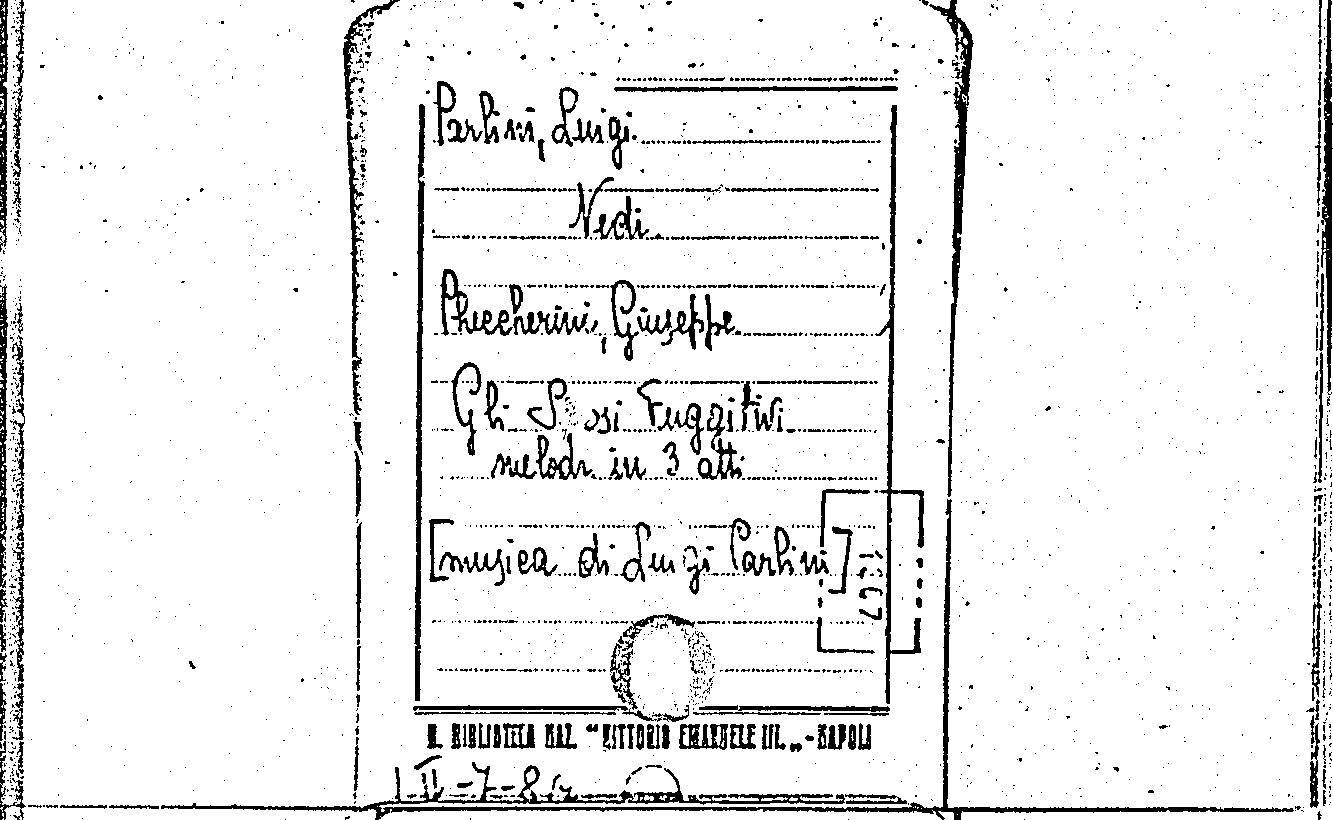 Parlini, Luigi.
Vedi.
Pheccherini, Giuseppe.
Gli Sposi Fuggitivi.
melodr. in 3 atti
[musica di Luigi Parlini]
R. BIBLIOTECA NAZ. "VITTORIO EMANUELE III."-NAPOLI